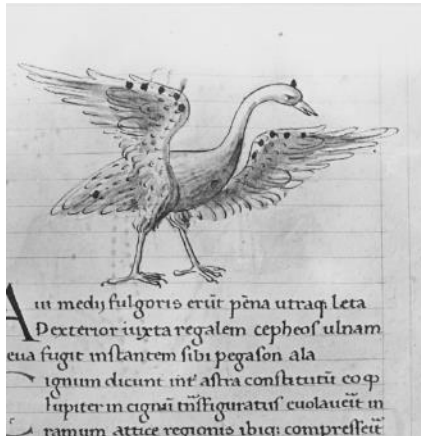 A ut medij fulgoris erūt pēna utraq; leta
Dexterior iuxta regalem cepheos ulnam
eua fugit instantem sibi pegason ala
ignum dicunt int' astra constitutū eo qp
Iupiter in cignū tn̄sfiguratus euolauerit in
ramum attice regionis ibiq; compresserit